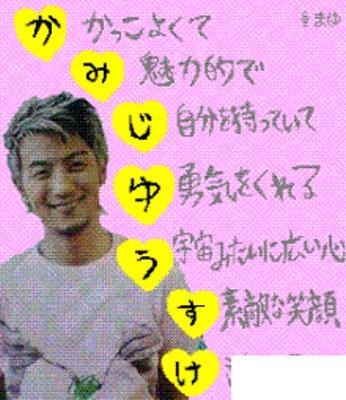 まゆ
か かっこよくて
み 魅力的で
じ 自分を持っていて
ゆ 勇気をくれる
う 宇宙みたいに広い心
す 素敵な笑顔
け